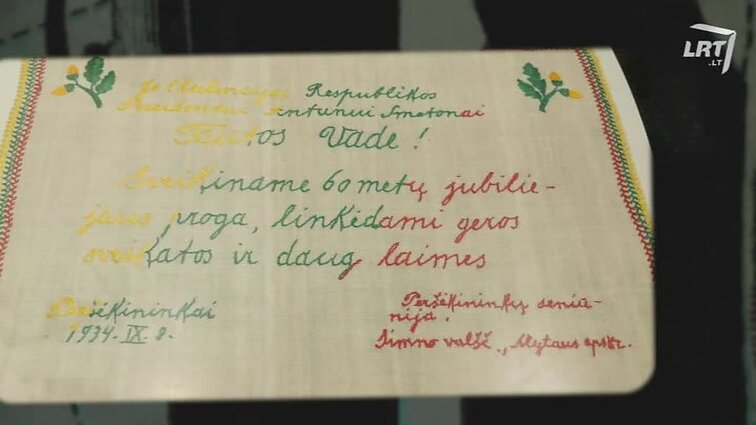 LRT
.LT
Jo Ekselencijai Respublikos
Prezidentui Antanui Smetonai
Tautos Vade!
Sveikiname 60 metų jubilie-
jaus proga, linkėdami geros
sveikatos ir daug laimės
Peršėkininkai
1934. IX. 8.
Peršėkininkų seniū-
nija.
Simno valšč., Alytaus apskr.